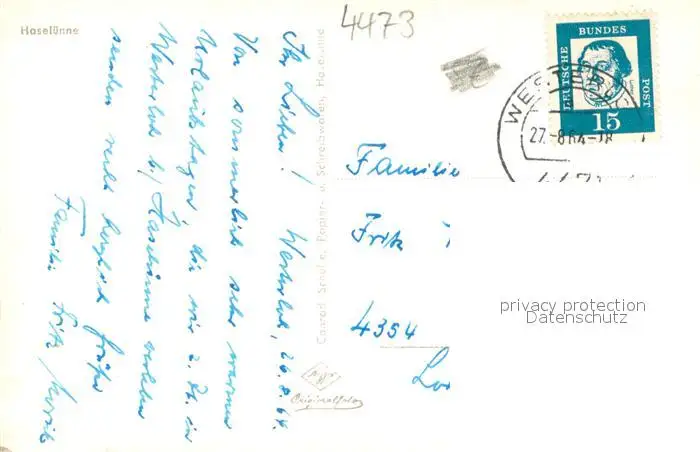 Haselünne
4473
DEUTSCHE BUNDES POST
15
27.-8.64-18
Ihr Lieben! Westerloh, 26.8.64.
Von sommerlich sehr warmen
Urlaubstagen, die wir z. Zt. in
Westerloh b/ Haselünne verleben
senden recht herzliche Grüße
Familie Fritz
Conrad Schulte, Papier- u. Schreibwaren, Haselünne
Originalfoto
Familie
Fritz
4354
privacy protection
Datenschutz